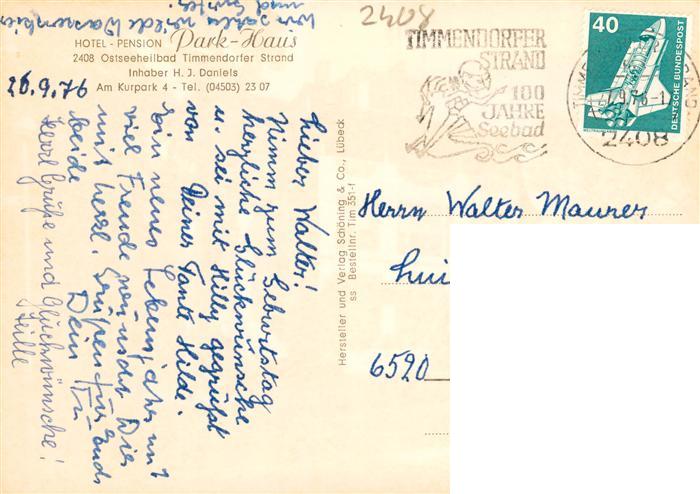 HOTEL - PENSION Park-Haus
2408 Ostseeheilbad Timmendorfer Strand
Inhaber H. J. Daniels
Am Kurpark 4 - Tel. (04503) 23 07
26.9.76
Lieber Walter!
Nimm zum Geburtstag
herzliche Glückwünsche
u. sei mit Hilly gegrüßt
von Deiner Tante Hilde.
Dein neues Lebensjahr mit
viel Freude wünscht Dir
mit herzl. Grüßen für Euch
beide Dein
Herzl. Grüße und Glückwünsche!
Hersteller und Verlag Schöning & Co., Lübeck
ss Bestellnr. Tim 351-f
2408
TIMMENDORFER
STRAND
100
JAHRE
Seebad
40
DEUTSCHE BUNDESPOST
2408
Herrn Walter Maurer
6520